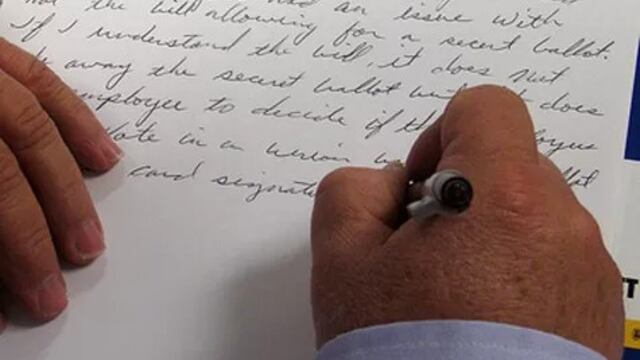 had an issue with
not the bill allowing for a secret ballot.
If I understand the bill, it does not
away the secret ballot does
employee to decide if the
vote in a
card
TT